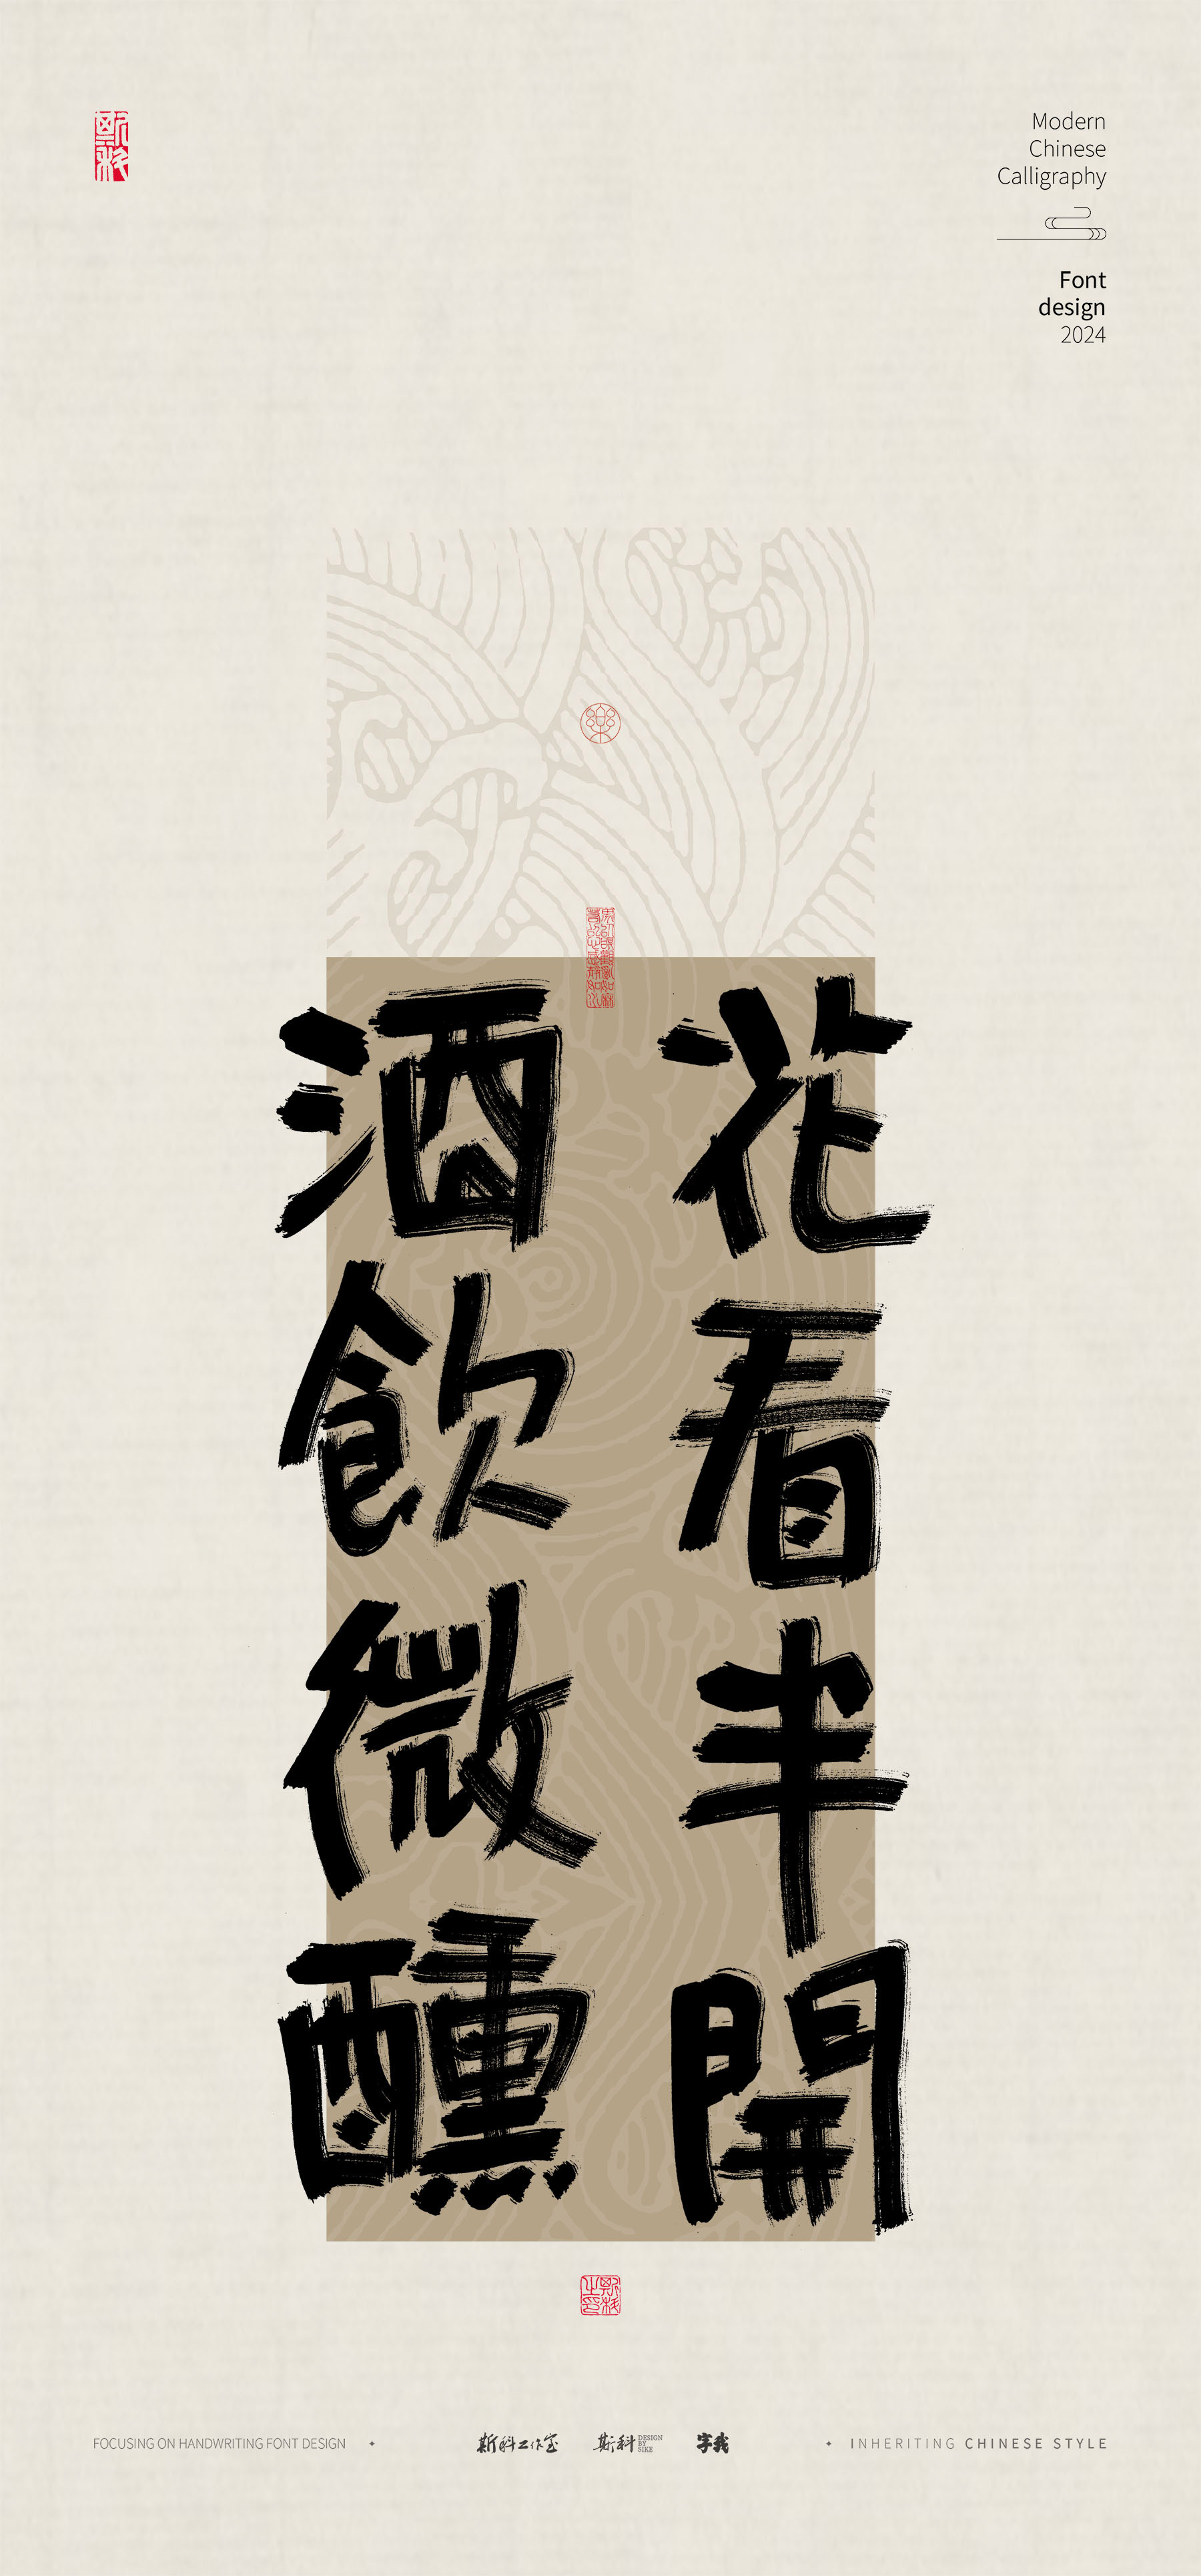 斯科
Modern
Chinese
Calligraphy
Font
design
2024
花看半開
酒飲微醺
斯科之印
FOCUSING ON HANDWRITING FONT DESIGN
斯科工作室
斯科
DESIGN
BY
SIKE
字我
INHERITING CHINESE STYLE